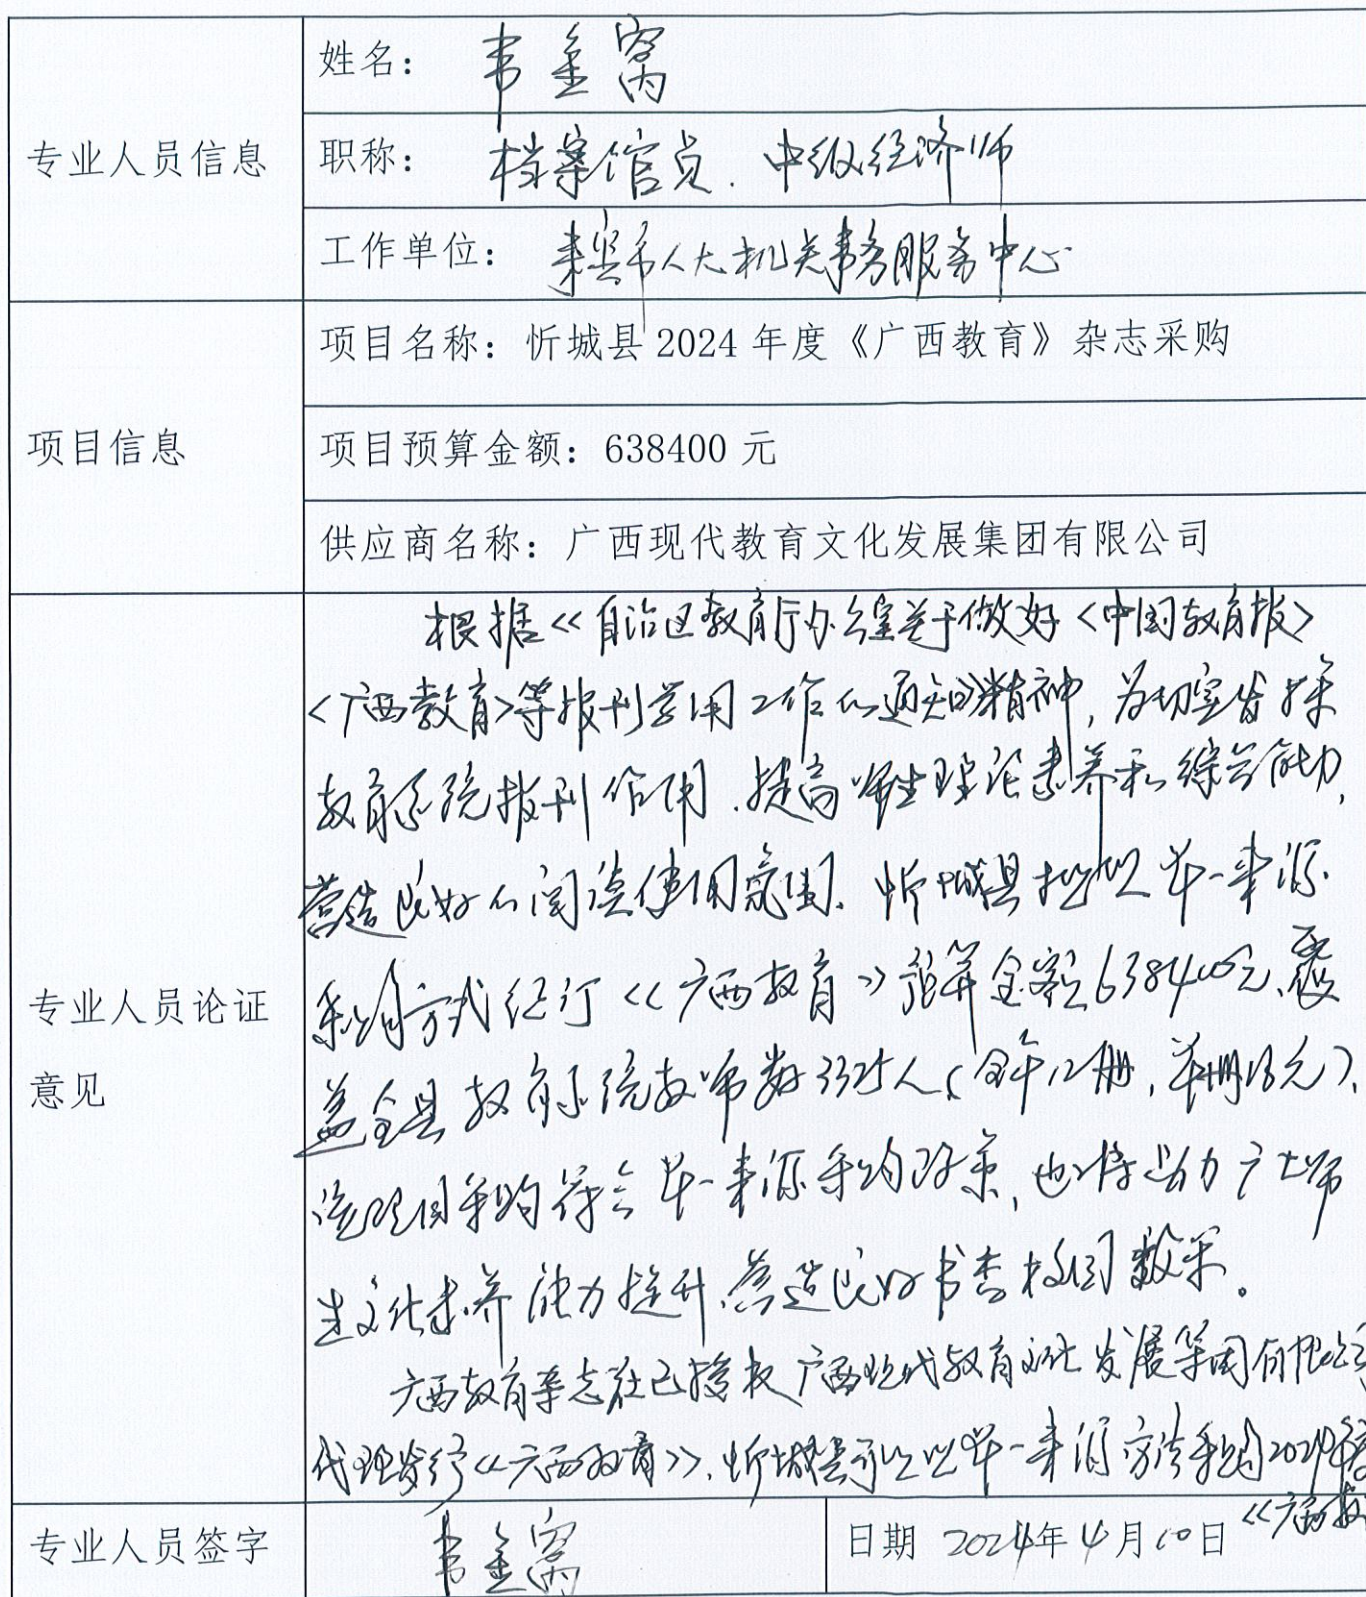 姓名：韦金窝
专业人员信息
职称：档案馆员、中级经济师
工作单位：来宾市人大机关事务服务中心
项目名称：忻城县2024年度《广西教育》杂志采购
项目信息
项目预算金额：638400元
供应商名称：广西现代教育文化发展集团有限公司
根据《自治区教育厅办公室关于做好〈中国教育报〉
〈广西教育〉等报刊学用工作的通知》精神，为切实发挥
教育系统报刊作用、提高师生理论素养和综合能力，
营造良好的阅读使用氛围、忻城县拟以单一来源
采购方式征订《广西教育》预算金额638400元、覆
专业人员论证
意见
盖全县教育系统教师数3325人（全年12册，单册16元）、
该项目采购符合单一来源采购政策，也将助力广大师
生文化素养能力提升、营造良好书香校园效果。
广西教育杂志社已授权广西现代教育文化发展集团有限公司
代理发行《广西教育》、忻城县可以以单一来源方式采购2024年度
《广西教
专业人员签字
韦金窝
日期 2024年4月10日